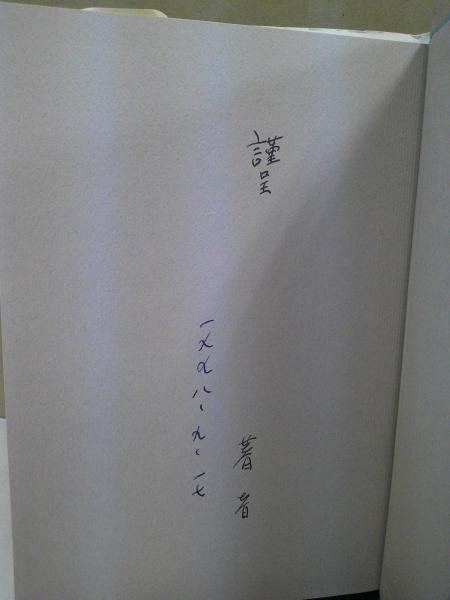 謹呈
著者
一九九八、九、一七